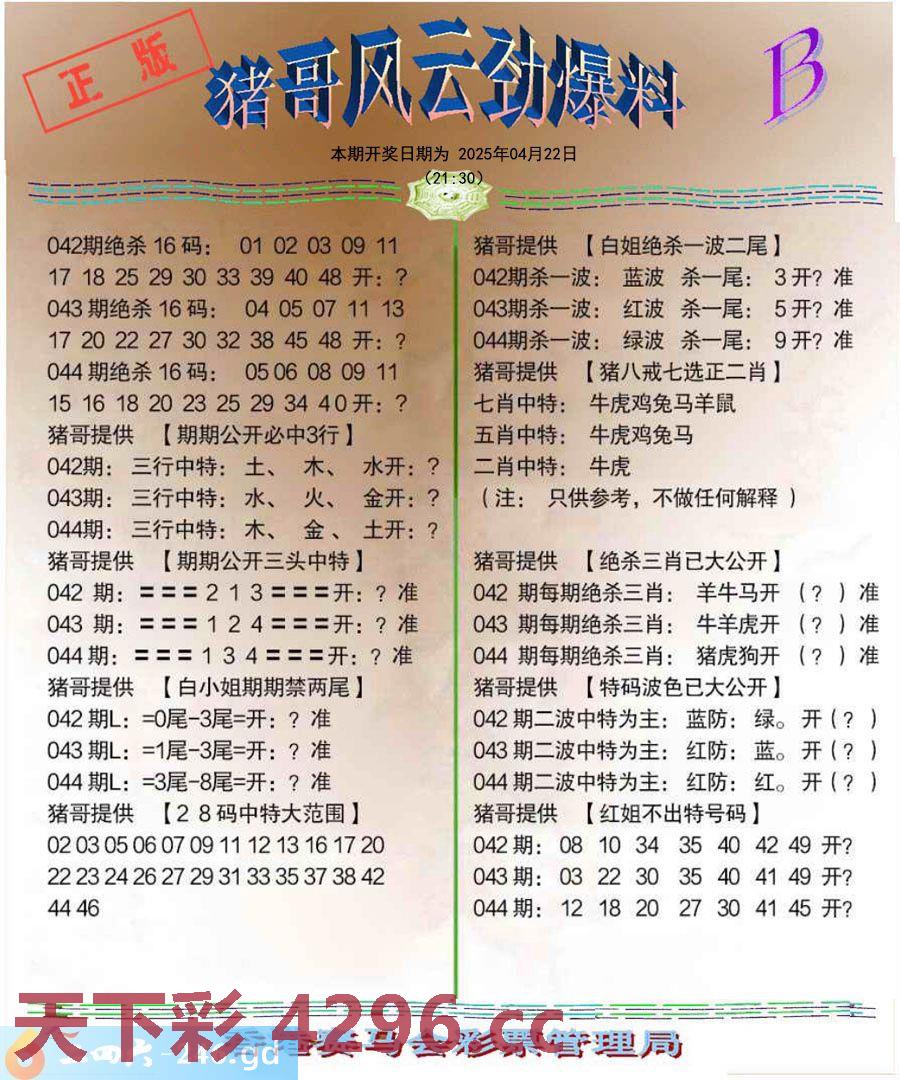 正版
猪哥风云劲爆料
B
本期开奖日期为 2025年04月22日
(21:30)
042期绝杀16码： 01 02 03 09 11
17 18 25 29 30 33 39 40 48 开：?
043期绝杀16码： 04 05 07 11 13
17 20 22 27 30 32 38 45 48 开：?
044期绝杀16码： 05 06 08 09 11
15 16 18 20 23 25 29 34 40开：?
猪哥提供 【期期公开必中3行】
042期：三行中特：土、 木、 水开：?
043期：三行中特：水、 火、 金开：?
044期：三行中特：木、 金、 土开：?
猪哥提供 【期期公开三头中特】
042 期：===213===开：? 准
043 期：===124===开：? 准
044期：===134===开：? 准
猪哥提供 【白小姐期期禁两尾】
042期L：=0尾-3尾=开：? 准
043期L：=1尾-3尾=开：? 准
044期L：=3尾-8尾=开：? 准
猪哥提供 【28码中特大范围】
02 03 05 06 07 09 11 12 13 16 17 20
22 23 24 26 27 29 31 33 35 37 38 42
44 46
猪哥提供 【白姐绝杀一波二尾】
042期杀一波： 蓝波 杀一尾： 3开? 准
043期杀一波： 红波 杀一尾： 5开? 准
044期杀一波： 绿波 杀一尾： 9开? 准
猪哥提供 【猪八戒七选正二肖】
七肖中特： 牛虎鸡兔马羊鼠
五肖中特： 牛虎鸡兔马
二肖中特： 牛虎
（注： 只供参考，不做任何解释 ）
猪哥提供 【绝杀三肖已大公开】
042 期每期绝杀三肖： 羊牛马开 （?）准
043 期每期绝杀三肖： 牛羊虎开 （?）准
044 期每期绝杀三肖： 猪虎狗开 （?）准
猪哥提供 【特码波色已大公开】
042期二波中特为主：蓝防：绿。开(?)
043期二波中特为主：红防：蓝。开(?)
044期二波中特为主：红防：红。开(?)
猪哥提供 【红姐不出特号码】
042期： 08 10 34 35 40 42 49 开?
043期： 03 22 30 35 40 41 49 开?
044期： 12 18 20 27 30 41 45 开?
天下彩 4296.cc
马会彩票管理局